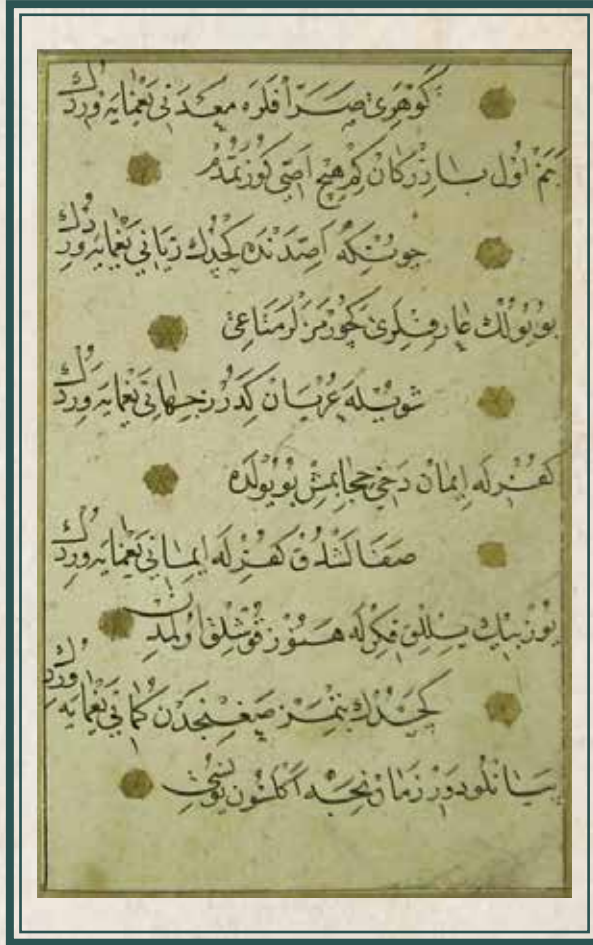 گوهری صرّافلره معدنی یغمایه وردك
بنم اول بازرگان كم هیچ اصّی گوزتمدم
چونكه اصّدن كچدك زیانی یغمایه وردك
بو یولك عارفلری گچورمزلر متاعی
شویله عریان كدرز جهانی یغمایه وردك
كفرله ایمان دخی حجابمش بو یولده
صفالشدق كفرله ایمانی یغمایه وردك
یوز بیك ییللق فكرله هنوز قوشلق اولمدن
گچدك بتمز صغنجدن گمانی یغمایه وردك
دور زمان نجه اكلسون